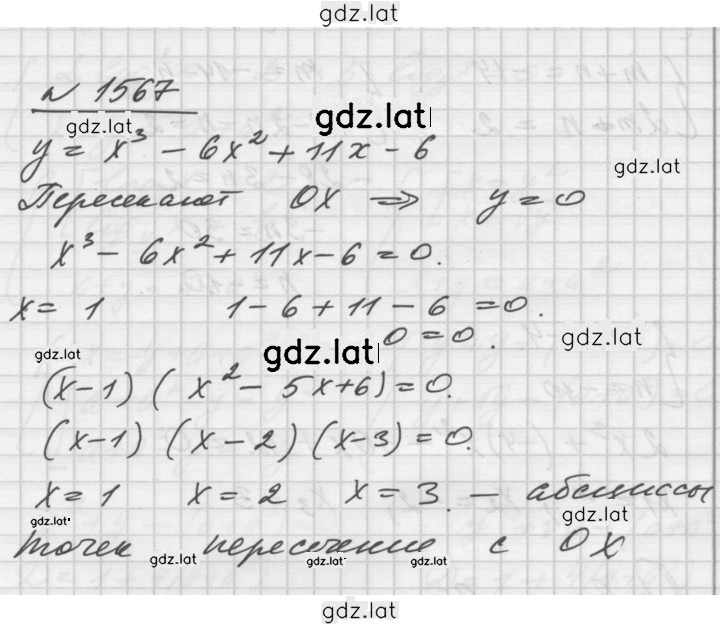 gdz.lat
№ 1567
gdz.lat gdz.lat
y = x³ − 6x² + 11x − 6
gdz.lat
Пересекают OX ⇒ y = 0
x³ − 6x² + 11x − 6 = 0.
x = 1 1 − 6 + 11 − 6 = 0.
0 = 0.
gdz.lat
gdz.lat gdz.lat
(x−1) (x² − 5x+6) = 0.
(x−1) (x−2) (x−3) = 0.
x = 1 x = 2 x = 3. — абсциссы
gdz.lat gdz.lat
точек пересечение с OX
gdz.lat gdz.lat gdz.lat
gdz.lat